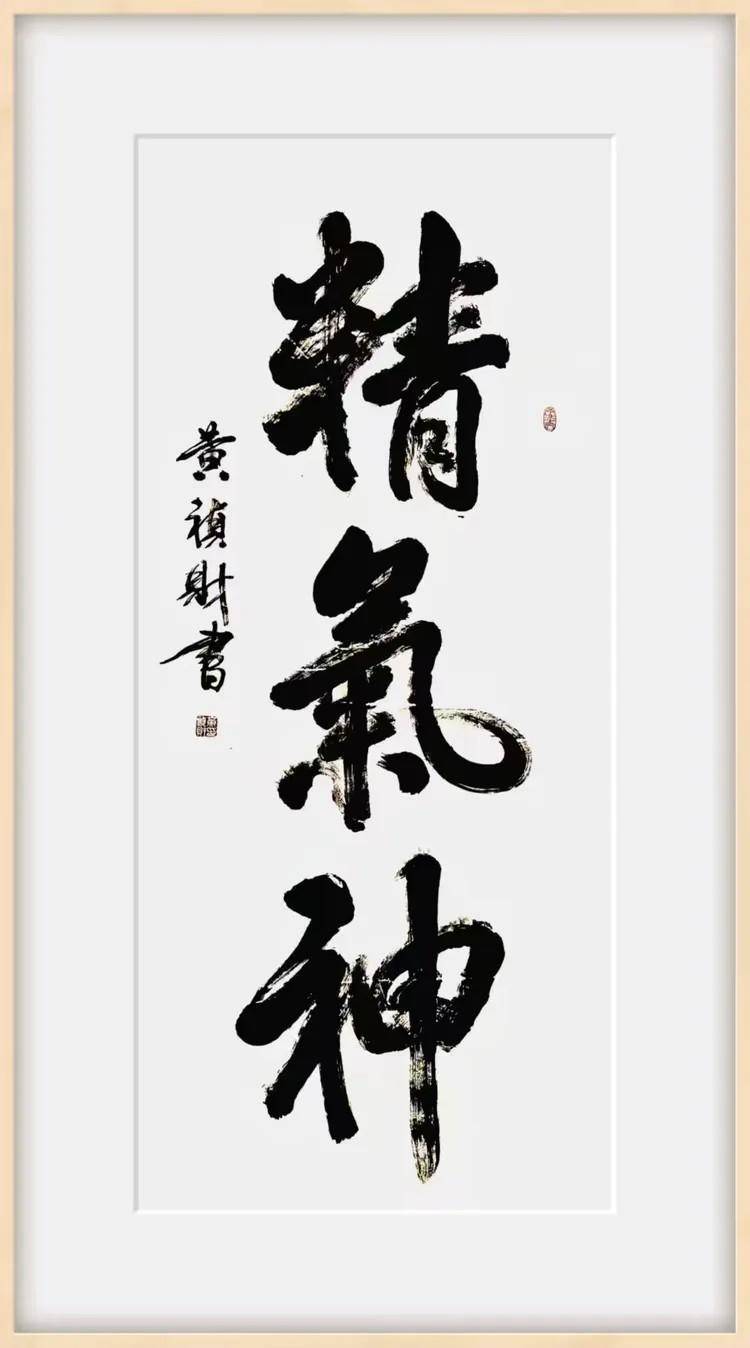 精氣神
黃禎財書